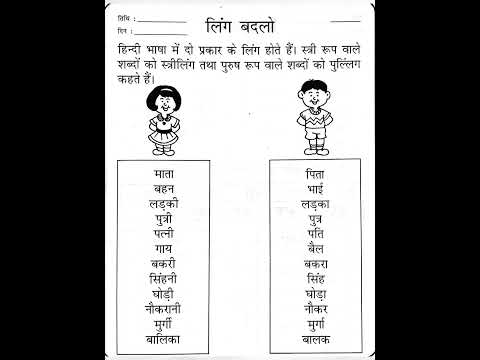 तिथि :
दिन :
लिंग बदलो
हिन्दी भाषा में दो प्रकार के लिंग होते हैं। स्त्री रूप वाले
शब्दों को स्त्रीलिंग तथा पुरुष रूप वाले शब्दों को पुल्लिंग
कहते हैं।
माता
बहन
लड़की
पुत्री
पत्नी
गाय
बकरी
सिंहनी
घोड़ी
नौकरानी
मुर्गी
बालिका
पिता
भाई
लड़का
पुत्र
पति
बैल
बकरा
सिंह
घोड़ा
नौकर
मुर्गा
बालक